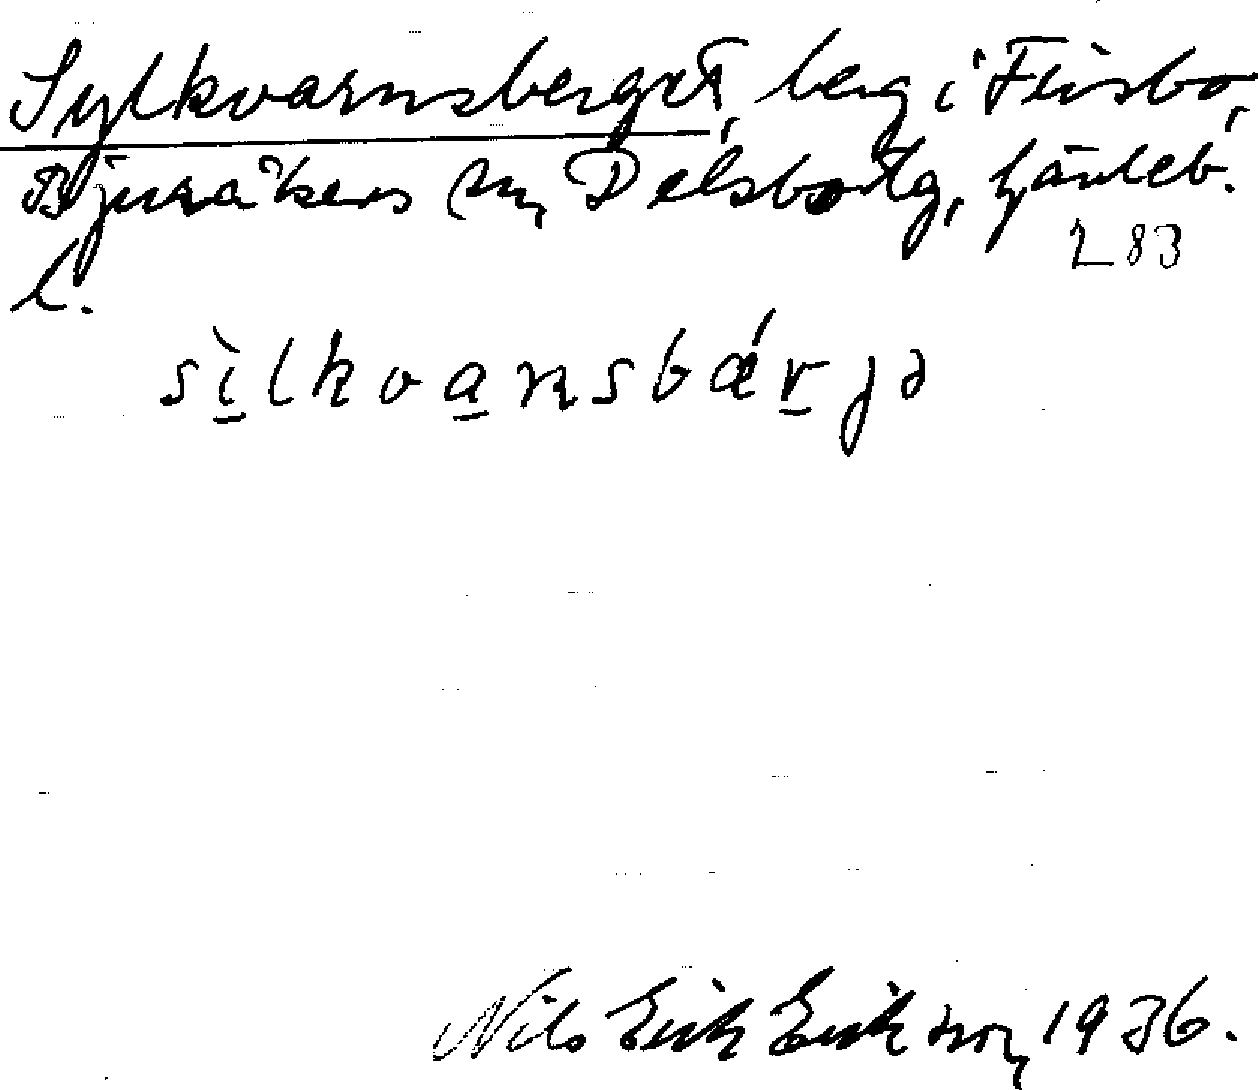 Sylkvarnsberget, berg i Fläsbo,
Bjuråkers sn, Delsbo tg, Gävleb.
l.
L 83
sìlkvansbárjə
Nils Erik Erikson, 1936.